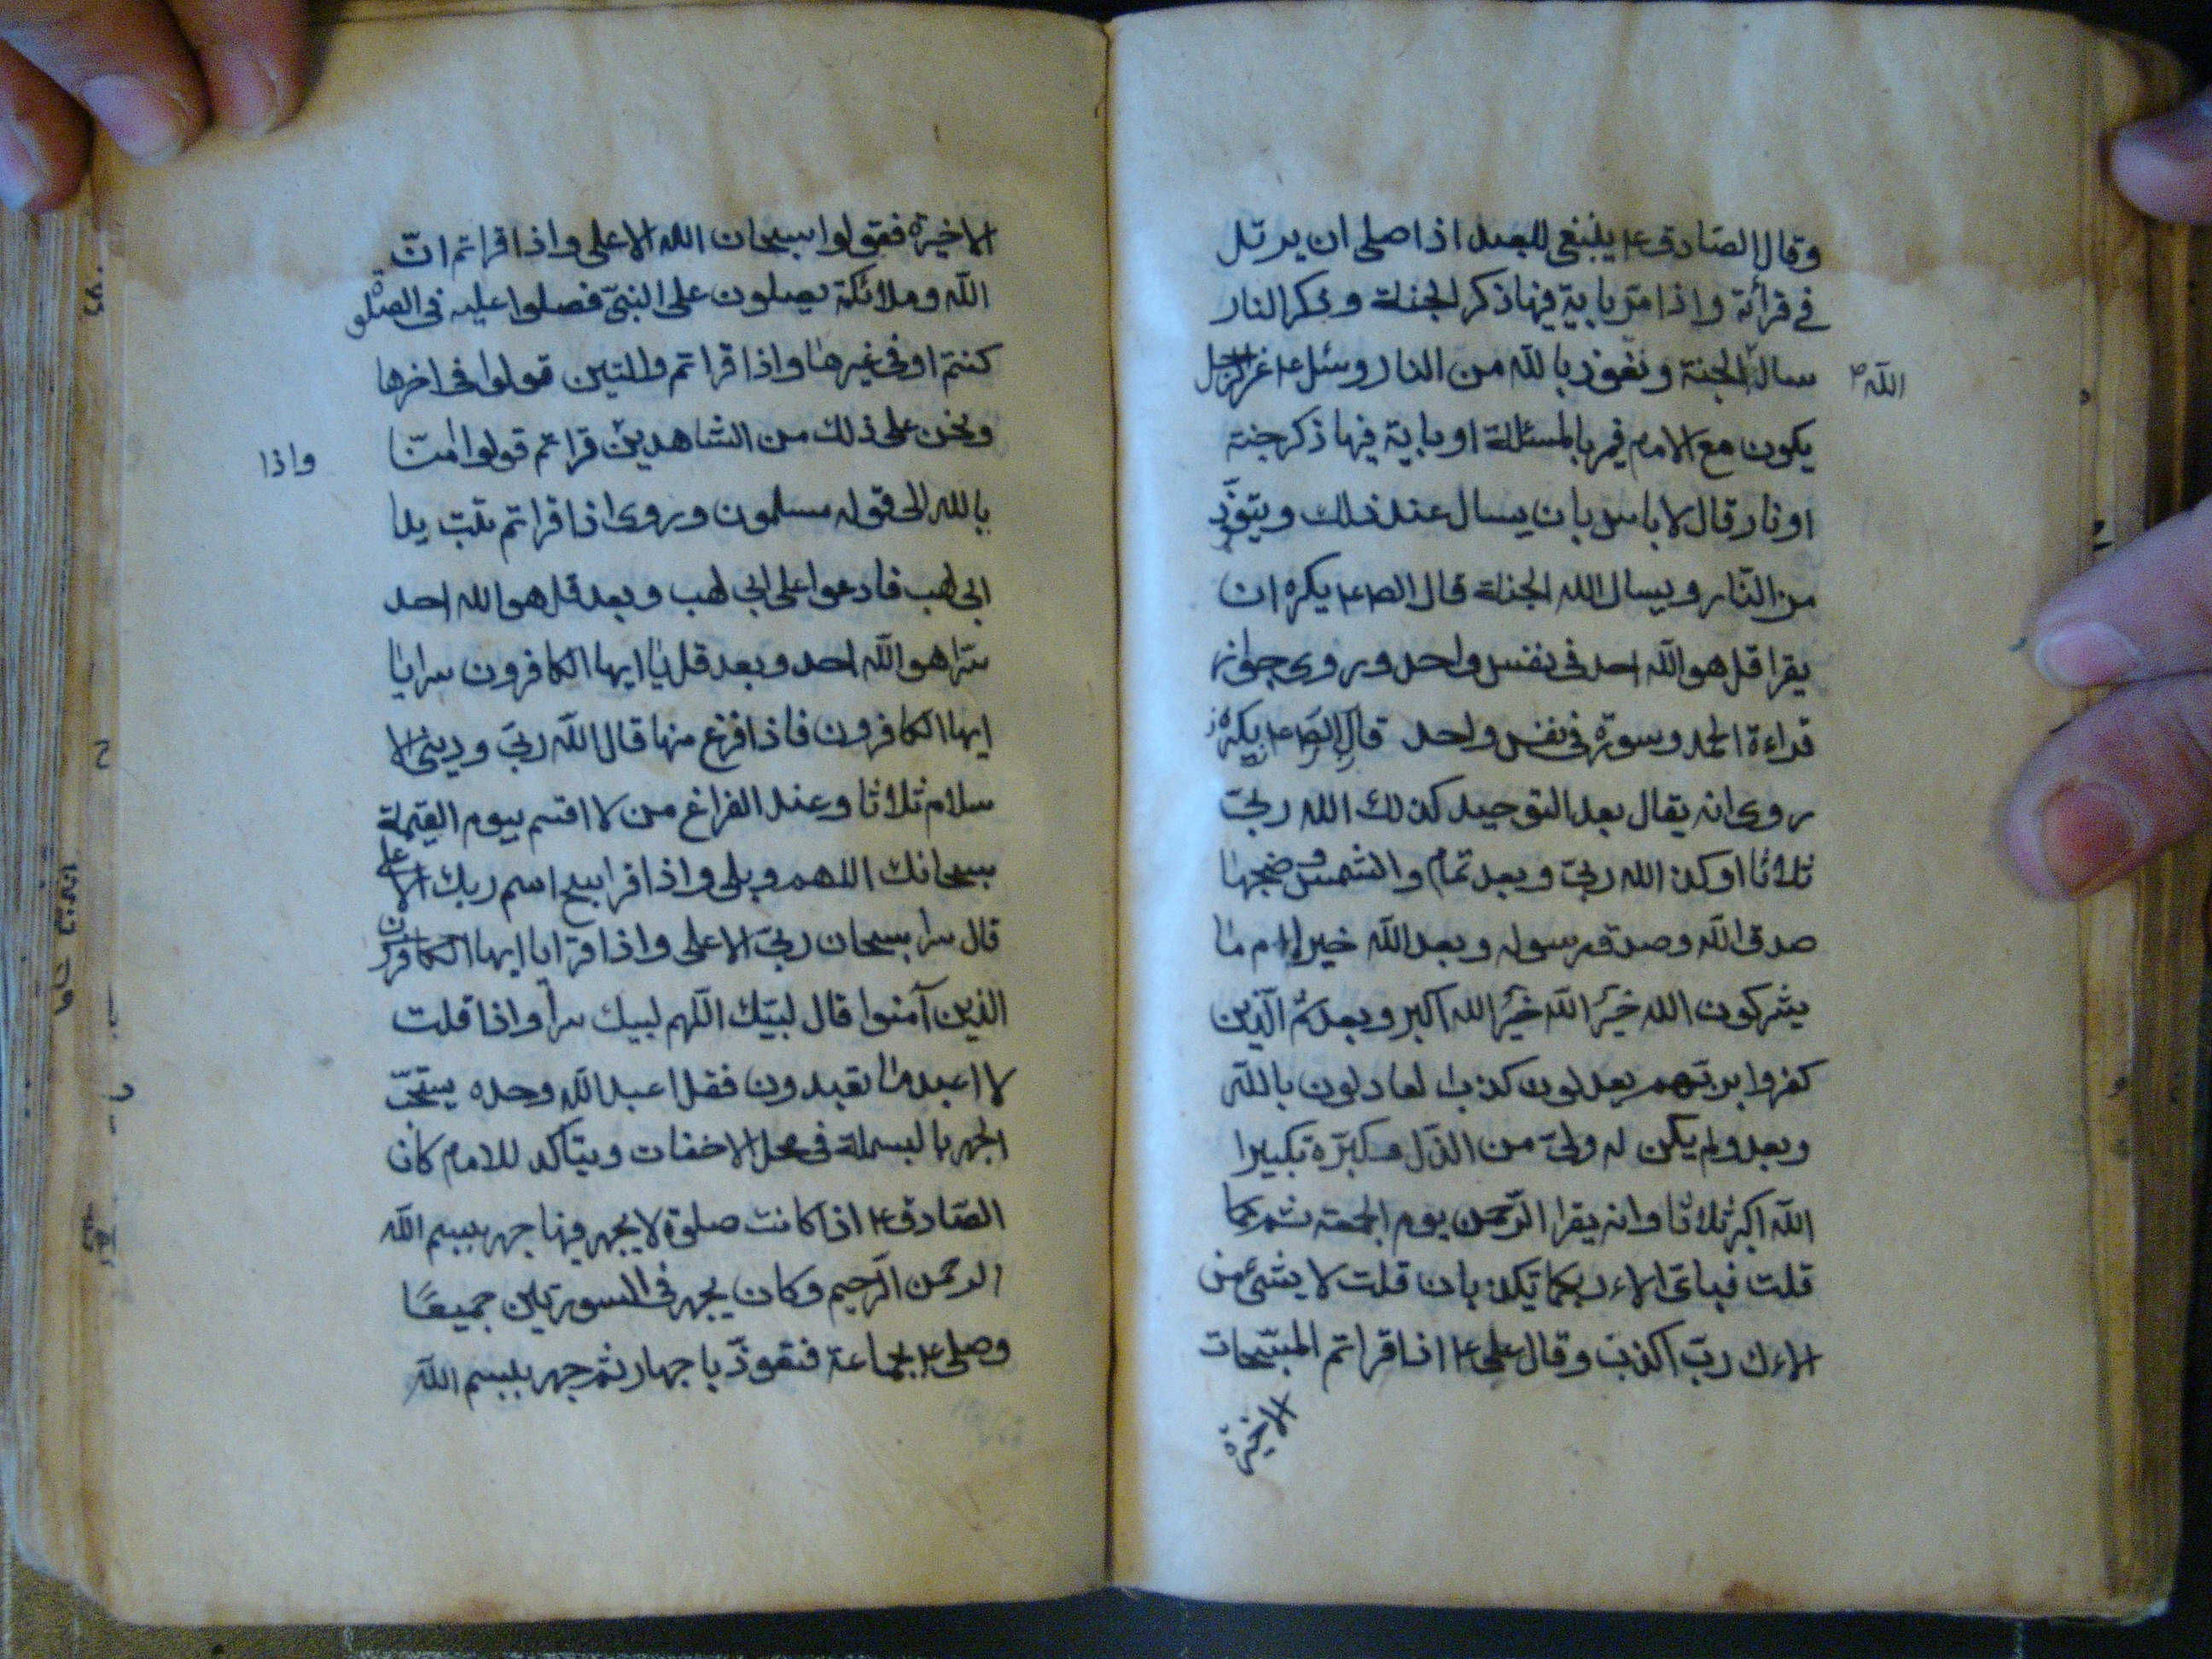 وقال الصادق ع ينبغي للعبد اذا صلى ان يرتل
في قرائة واذا مر باية فيها ذكر الجنة وذكر النار
سال الجنة ونعوذ بالله من النار وسئل ع عن الرجل
الله
يكون مع الامام فيمر بالمسئلة او باية فيها ذكر جنة
او نار قال لا باس بان يسال عند ذلك ويتعوذ
من النار ويسال الله الجنة قال الص ع يكره ان
يقرا قل هو الله احد في نفس واحد وروى جوازه
قراءة الحمد وسورة في نفس واحد قال الص ع يكره
روى انه يقال بعد التوحيد كذلك الله ربي
ثلاثا او كذ الله ربي وبعد تمام والشمس وضحيها
صدق الله وصدق رسوله وبعد الله خير ام ما
يشركون الله خير الله خير الله اكبر وبعد ثم الذين
كفروا بربهم يعدلون كذب العادلون بالله
وبعد ولم يكن له ولي من الذل وكبره تكبيرا
الله اكبر ثلاثا وانه يقرا الرحمن يوم الجمعة ثم كلما
قلت فباي الاء ربكما تكذبان قلت لا بشئ من
الاءك رب اكذب وقال علي ع اذا قراتم المسبحات
الاخيرة
الاخيرة فقولوا سبحان الله الاعلى واذا قراتم ان
الله وملائكته يصلون على النبي فصلوا عليه في الصلوة
كنتم او في غيرها واذا قراتم والتين قولوا في اخرها
ونحن على ذلك من الشاهدين قراتم قولوا امنا
واذا
بالله الى قوله مسلمون وروى اذا قراتم تبت يدا
ابي لهب فادعوا على ابي لهب وبعد قل هو الله احد
سرا هو الله احد وبعد قل يا ايها الكافرون سرا يا
ايها الكافرون فاذا فرغ منها قال الله ربي وديني الا
سلام ثلاثا وعند الفراغ من لا اقسم بيوم القيمة
سبحانك اللهم وبلى واذا قرا سبح اسم ربك الاعلى
قال سرا سبحان ربي الاعلى واذا قرا يا ايها الكافرون
الذين آمنوا قال لبيك اللهم لبيك سرا واذا قلت
لا اعبد ما تعبدون فقل اعبد الله وحده يستحب
الجهر بالبسملة في محل الاخفات ويتاكد للامام كان
الصادق ع اذا كانت صلوة لا يجهر فيها جهر ببسم الله
الرحمن الرحيم وكان يجهر في السورتين جميعا
وصلى ع بجماعة فتعوذ باجهار ثم جهر ببسم الله